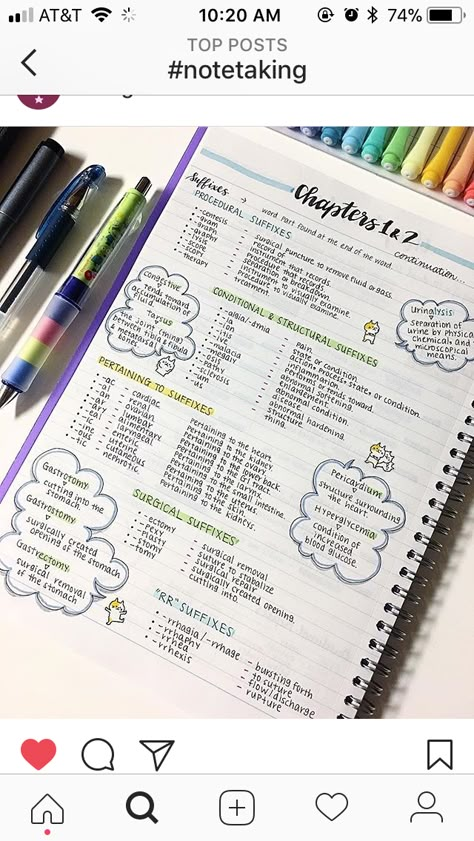 AT&T
10:20 AM
74%
TOP POSTS
#notetaking
Chapters 1 & 2
continuation...
Suffixes → word part found at the end of the word.
PROCEDURAL SUFFIXES
-centesis surgical puncture to remove fluid or gass.
-gram record
-graph instrument that records.
-graphy procedure that records.
-lysis separation or breakdown.
-scope instrument to visually examine
-scopy procedure to visually examine.
-therapy treatment
Congestive
tends toward
accumulation of
fluid
Tarsus
the joint (thing)
between tibia & fibula
& metatarsal
bones
CONDITIONAL & STRUCTURAL SUFFIXES
-algia/-dynia pain.
-ia state or condition.
-ion action, process, state, or condition
-itis inflammation.
-ive pertains to, tends toward
-malacia abnormal softening.
-megaly enlargement.
-osis abnormal condition.
-pathy disease.
-sclerosis abnormal hardening.
-um structure.
-us thing.
Urinalysis:
separation of
urine by physical
chemical, and
microscopical
means.
PERTAINING TO SUFFIXES
-ac cardiac pertaining to the heart.
-al renal pertaining to the kidney.
-an ovarian pertaining to the ovary
-ar lumbar pertaining to the lower back.
-ary alimentary pertaining to the GI tract.
-eal laryngeal pertaining to the larynx.
-ic enteric pertaining to the small intestine.
-ine uterine pertaining to the uterus.
-ous cutaneous pertaining to the skin
-tic nephrotic pertaining to the kidneys.
Pericardium
structure surrounding
the heart.
Hyperglycemia
condition of
increased
blood glucose.
Gastrotomy
cutting into the
stomach
Gastrostomy
surgically created
opening of the stomach
Gastrectomy
surgical removal
of the stomach
SURGICAL SUFFIXES
-ectomy surgical removal
-pexy suture to stabilize
-plasty surgical repair
-stomy surgically created opening.
-tomy cutting into.
"RR" SUFFIXES
-rrhagia/-rrhage - bursting forth
-rrhaphy - to suture
-rrhea - flow/discharge
-rrhexis - rupture